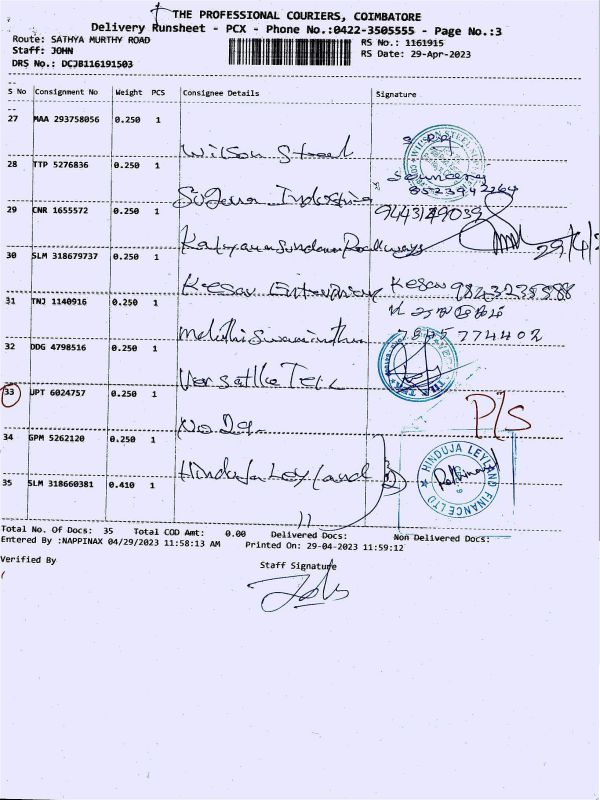 THE PROFESSIONAL COURIERS, COIMBATORE
Delivery Runsheet - PCX - Phone No.:0422-3505555 - Page No.:3
Route: SATHYA MURTHY ROAD
RS No.: 1161915
Staff: JOHN
RS Date: 29-Apr-2023
DRS No.: DCJB116191503
S No Consignment No Weight PCS Consignee Details Signature
27 MAA 293758056 0.250 1
Wilson Steel
28 TTP 5276836 0.250 1
8523942264
Industries
29 CNR 1655572 0.250 1
9443149039
Kalyanasundaram Roadways
29/4/2
30 SLM 318679737 0.250 1
Kesav Enterprises Kesav 9843235588
31 TNJ 1140916 0.250 1
7845774402
32 DDG 4798516 0.250 1
Versatile
33 UPT 6024757 0.250 1
P/S
No. 29
34 GPM 5262120 0.250 1
Hinduja Leyland
HINDUJA LEYLAND FINANCE LTD
35 SLM 318660381 0.410 1
11
Total No. Of Docs: 35 Total COD Amt: 0.00 Delivered Docs: Non Delivered Docs:
Entered By :NAPPINAX 04/29/2023 11:58:13 AM Printed On: 29-04-2023 11:59:12
Verified By
Staff Signature